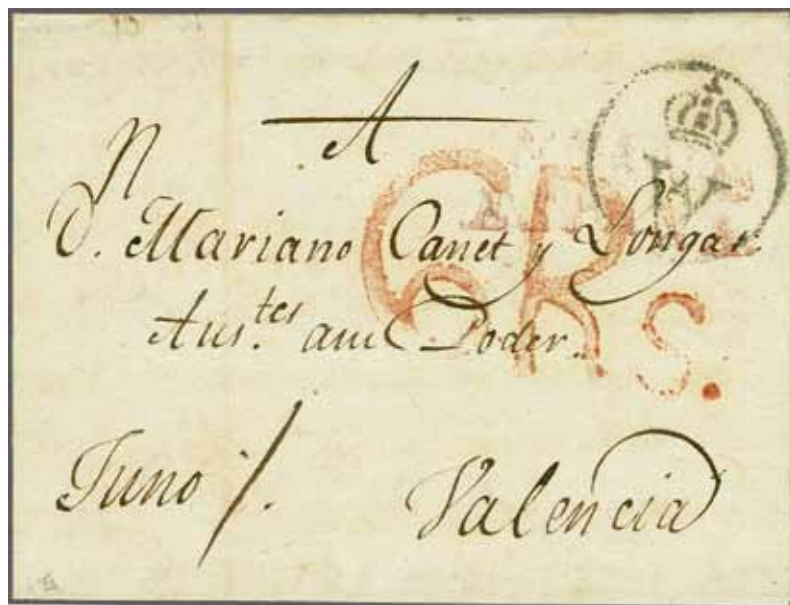 A
n
D. Mariano Canet y Longas.
Aus.tes a mi Poder.
Juno /. Valencia
6 Rs.